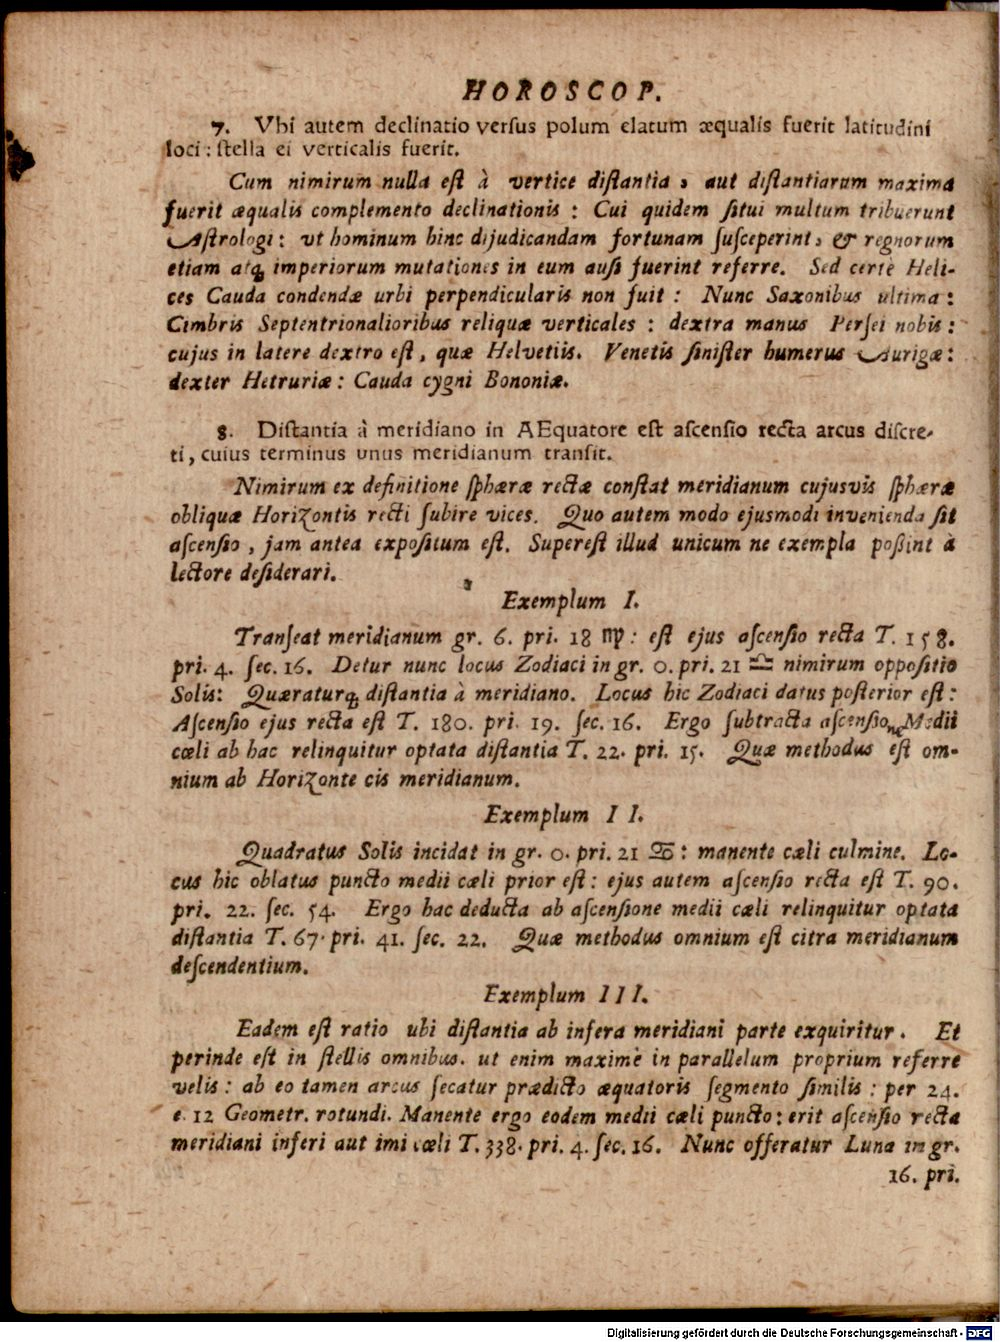 HOROSCOP.
7. Vbi autem declinatio versus polum elatum æqualis fuerit latitudini
loci: stella ei verticalis fuerit.
Cum nimirum nulla est à vertice distantia, aut distantiarum maxima
fuerit æqualis complemento declinationis: Cui quidem situi multum tribuerunt
Astrologi: vt hominum hinc dijudicandam fortunam susceperint, & regnorum
etiam atq; imperiorum mutationes in eum ausi fuerint referre. Sed certè Heli-
ces Cauda condendæ urbi perpendicularis non fuit: Nunc Saxonibus ultima:
Cimbris Septentrionalioribus reliquæ verticales: dextra manus Persei nobis:
cujus in latere dextro est, quæ Helvetiis. Venetis sinister humerus Aurigæ:
dexter Hetruriæ: Cauda cygni Bononiæ.
8. Distantia à meridiano in AEquatore est ascensio recta arcus discre-
ti, cuius terminus unus meridianum transit.
Nimirum ex definitione sphæræ rectæ constat meridianum cujusvis sphæræ
obliquæ Horizontis recti subire vices. Quo autem modo ejusmodi invenienda sit
ascensio, jam antea expositum est. Superest illud unicum ne exempla poßint à
lectore desiderari.
Exemplum I.
Transeat meridianum gr. 6. pri. 18 ♍: est ejus ascensio recta T. 158.
pri. 4. sec. 16. Detur nunc locus Zodiaci in gr. 0. pri. 21 ♎ nimirum oppositio
Solis: Quæraturq; distantia à meridiano. Locus hic Zodiaci datus posterior est:
Ascensio ejus recta est T. 180. pri. 19. sec. 16. Ergo subtracta ascensione Medii
cœli ab hac relinquitur optata distantia T. 22. pri. 15. Quæ methodus est om-
nium ab Horizonte cis meridianum.
Exemplum II.
Quadratus Solis incidat in gr. 0. pri. 21 ♋: manente cœli culmine. Lo-
cus hic oblatus puncto medii cœli prior est: ejus autem ascensio recta est T. 90.
pri. 22. sec. 54. Ergo hac deducta ab ascensione medii cœli relinquitur optata
distantia T. 67. pri. 41. sec. 22. Quæ methodus omnium est citra meridianum
descendentium.
Exemplum III.
Eadem est ratio ubi distantia ab infera meridiani parte exquiritur. Et
perinde est in stellis omnibus. ut enim maximè in parallelum proprium referre
velis: ab eo tamen arcus secatur prædicto æquatoris segmento similis: per 24.
e. 12 Geometr. rotundi. Manente ergo eodem medii cœli puncto: erit ascensio recta
meridiani inferi aut imi cœli T. 338. pri. 4. sec. 16. Nunc offeratur Luna in gr.
16. pri.
Digitalisierung gefördert durch die Deutsche Forschungsgemeinschaft - DFG